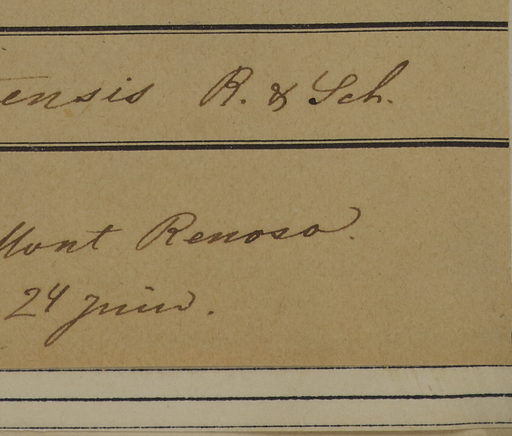 ensis R. & Sch.
Mont Renoso.
24 juin.